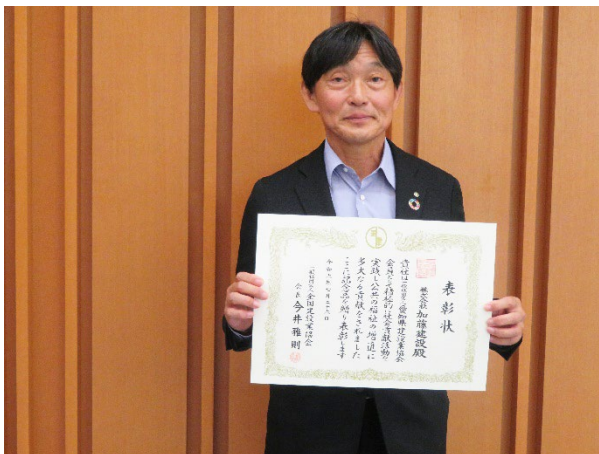 表彰状
株式会社 加藤建設殿
貴社は一般社団法人愛知県建設業協会
会員として積極的に社会貢献活動を
実践し公共の福祉の増進に
多大なる貢献をされました
ここに記念品を贈り表彰します
一般社団法人 全国建設業協会
会長 今井雅則